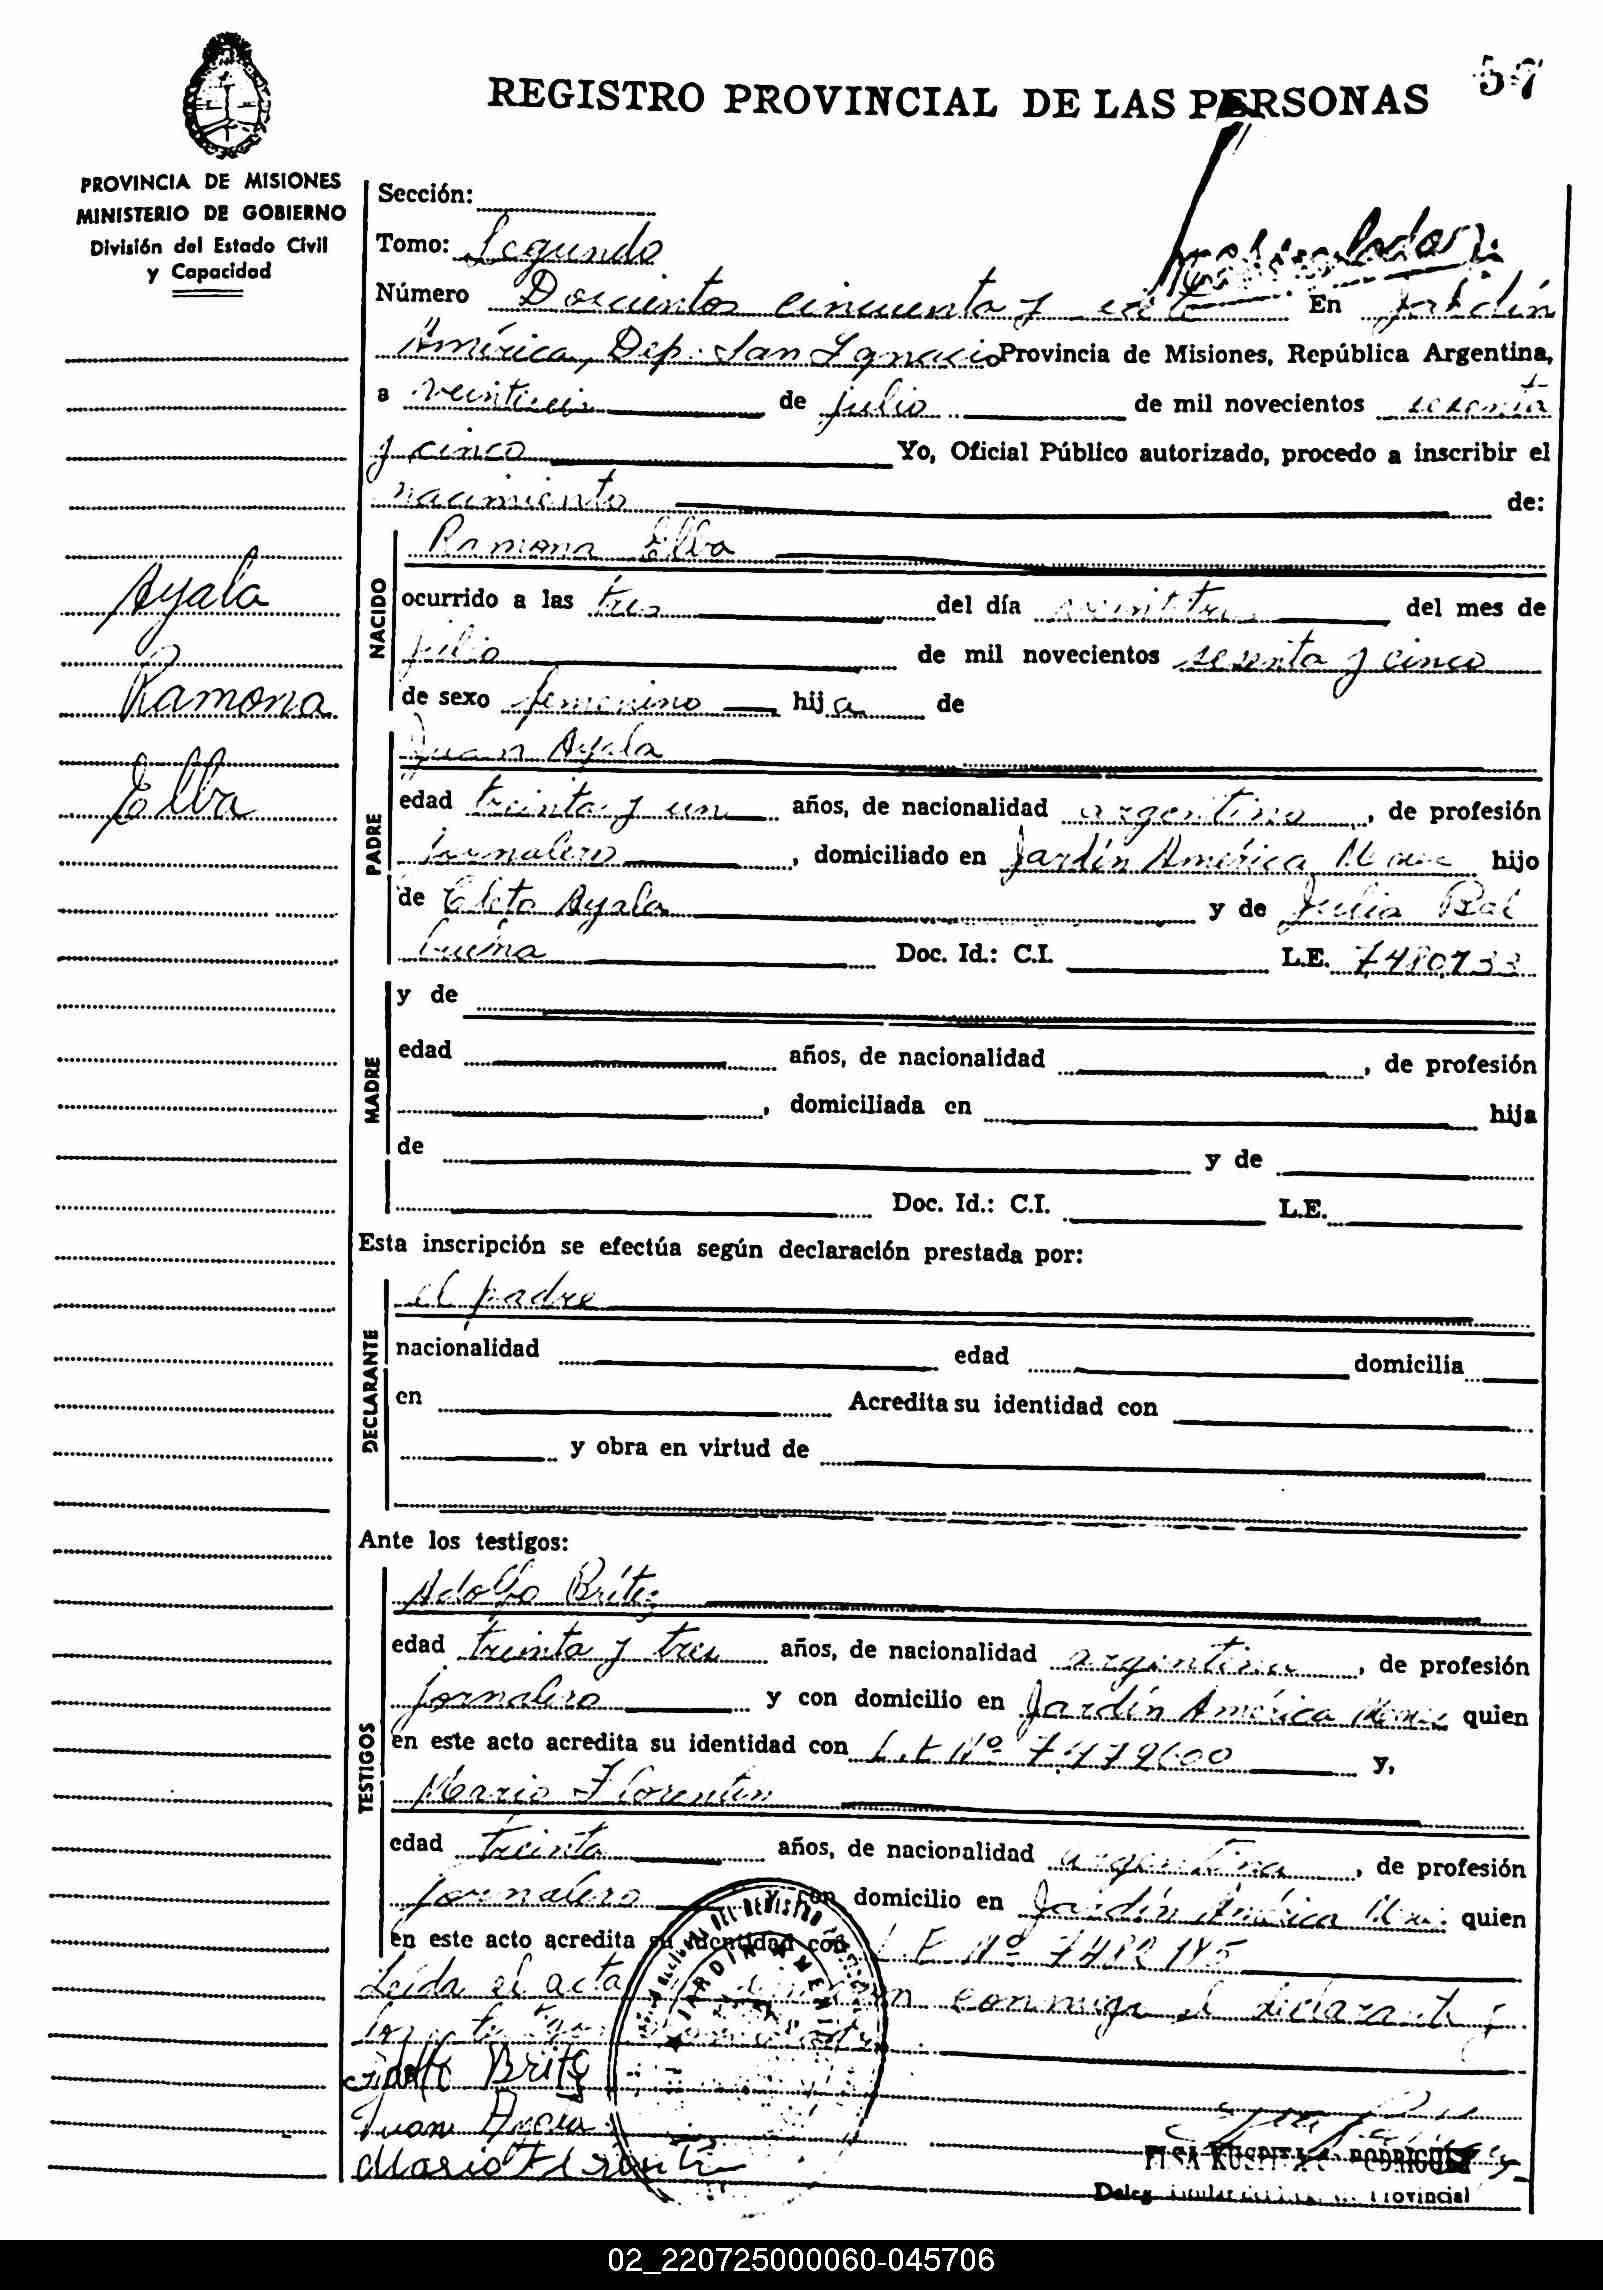 57
REGISTRO PROVINCIAL DE LAS PERSONAS
PROVINCIA DE MISIONES
MINISTERIO DE GOBIERNO
División del Estado Civil
y Capacidad
Sección:
Tomo: Segundo
Número Doscientos cincuenta y siete En Jardín
América, Dep. San Ignacio Provincia de Misiones, República Argentina,
a veintiseis de julio de mil novecientos sesenta
y cinco Yo, Oficial Público autorizado, procedo a inscribir el
nacimiento de:
Ayala
Ramona
Elba
NACIDO
Ramona Elba
ocurrido a las tres del día veintitres del mes de
julio de mil novecientos sesenta y cinco
de sexo femenino hija de
PADRE
Juan Ayala
edad treinta y un años, de nacionalidad argentino, de profesión
jornalero, domiciliado en Jardín América hijo
de Cleto Ayala y de Julia
Doc. Id.: C.I. L.E. 7480733
MADRE
y de
edad años, de nacionalidad , de profesión
, domiciliada en hija
de y de
Doc. Id.: C.I. L.E.
Esta inscripción se efectúa según declaración prestada por:
DECLARANTE
el padre
nacionalidad edad domicilia
en Acredita su identidad con
y obra en virtud de
Ante los testigos:
TESTIGOS
Adolfo Britez
edad treinta y tres años, de nacionalidad argentina, de profesión
jornalero y con domicilio en Jardín América quien
en este acto acredita su identidad con L.E Nº y,
Mario Florentin
edad treinta años, de nacionalidad argentina, de profesión
jornalero y con domicilio en Jardín América quien
en este acto acredita su identidad con L.E Nº
Leída el acta conmigo el declarante y
los testigos
Adolfo Britez
Juan Ayala
Mario Florentin
JARDIN AMERICA
RODRIGUEZ
Provincial
02_220725000060-045706